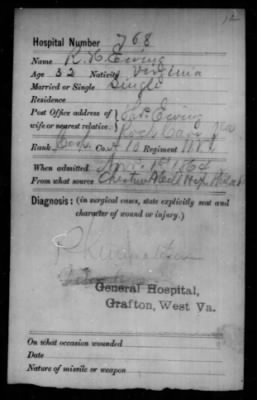 12
Hospital Number 768
Name R. H. Ewing
Age 32 Nativity Virginia
Married or Single Single
Residence
Post Office address of
wife or nearest relative: Ewing
Rank Corp. Co. A 10 Regiment W Va
When admitted Nov. 1st 1864
From what source Chestnut Hill
Diagnosis: (in surgical cases, state explicitly seat and
character of wound or injury.)
General Hospital,
Grafton, West Va.
On what occasion wounded
Date
Nature of missile or weapon